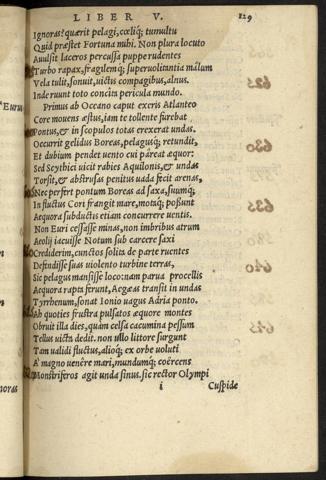 LIBER V. 129
Ignoras? quærit pelagi, cœliq; tumultu
Quid præstet Fortuna mihi. Non plura locuto
Avulsit laceros percussa puppe rudentes
Turbo rapax, fragilemq; superuolitantia málum
Vela tulit, sonuit, uictis compagibus, alnus.
625
Inde ruunt toto concita pericula mundo.
Primus ab Oceano caput exeris Atlanteo
Core mouens æstus, iam te tollente furebat
Pontus, & in scopulos totas erexerat undas.
Occurrit gelidus Boreas, pelagusq; retundit,
630
Et dubium pendet uento cui páreat æquor:
Sed Scythici uicit rabies Aquilonis, & undas
Torsit, & abstrusas penitus uada fecit arenas,
Nec perfert pontum Boreas ad saxa, suumq;
In fluctus Cori frangit mare, motaq; possunt
635
Aequora subductis etiam concurrere uentis.
Non Euri cessasse minas, non imbribus atrum
Aeolij iacuisse Notum sub carcere saxi
Crediderim, cunctos solita de parte ruentes
Defendisse suas uiolento turbine terras,
640
Sic pelagus mansisse loco: nam parua procellis
Aequora rapta ferunt, Aegæas transit in undas
Tyrrhenum, sonat Ionio uagus Adria ponto.
Ab quoties frustra pulsatos æquore montes
Obruit illa dies, quàm celsa cacumina pessum
645
Tellus uicta dedit. non ullo littore surgunt
Tam ualidi fluctus, alioq; ex orbe uoluti
A' magno uenêre mari, mundumq; coërcens
Monstriferos agit unda sinus. sic rector Olympi
i Cuspide